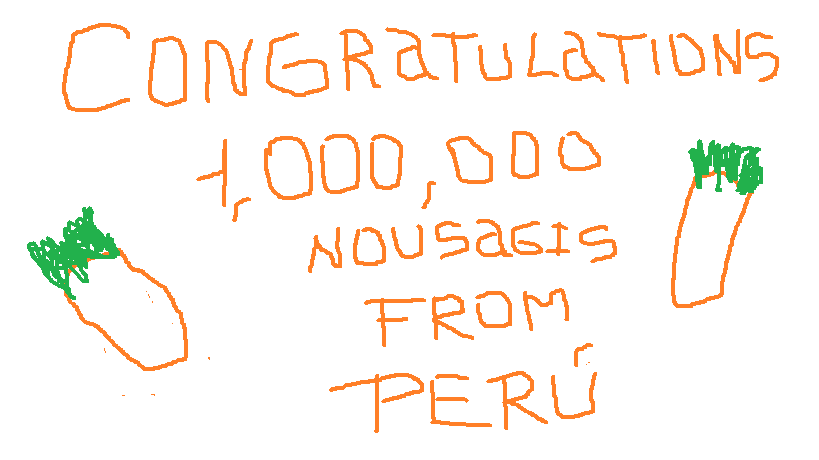 CONGRATULATIONS
1,000,000
NOUSAGIS
FROM
PERÚ